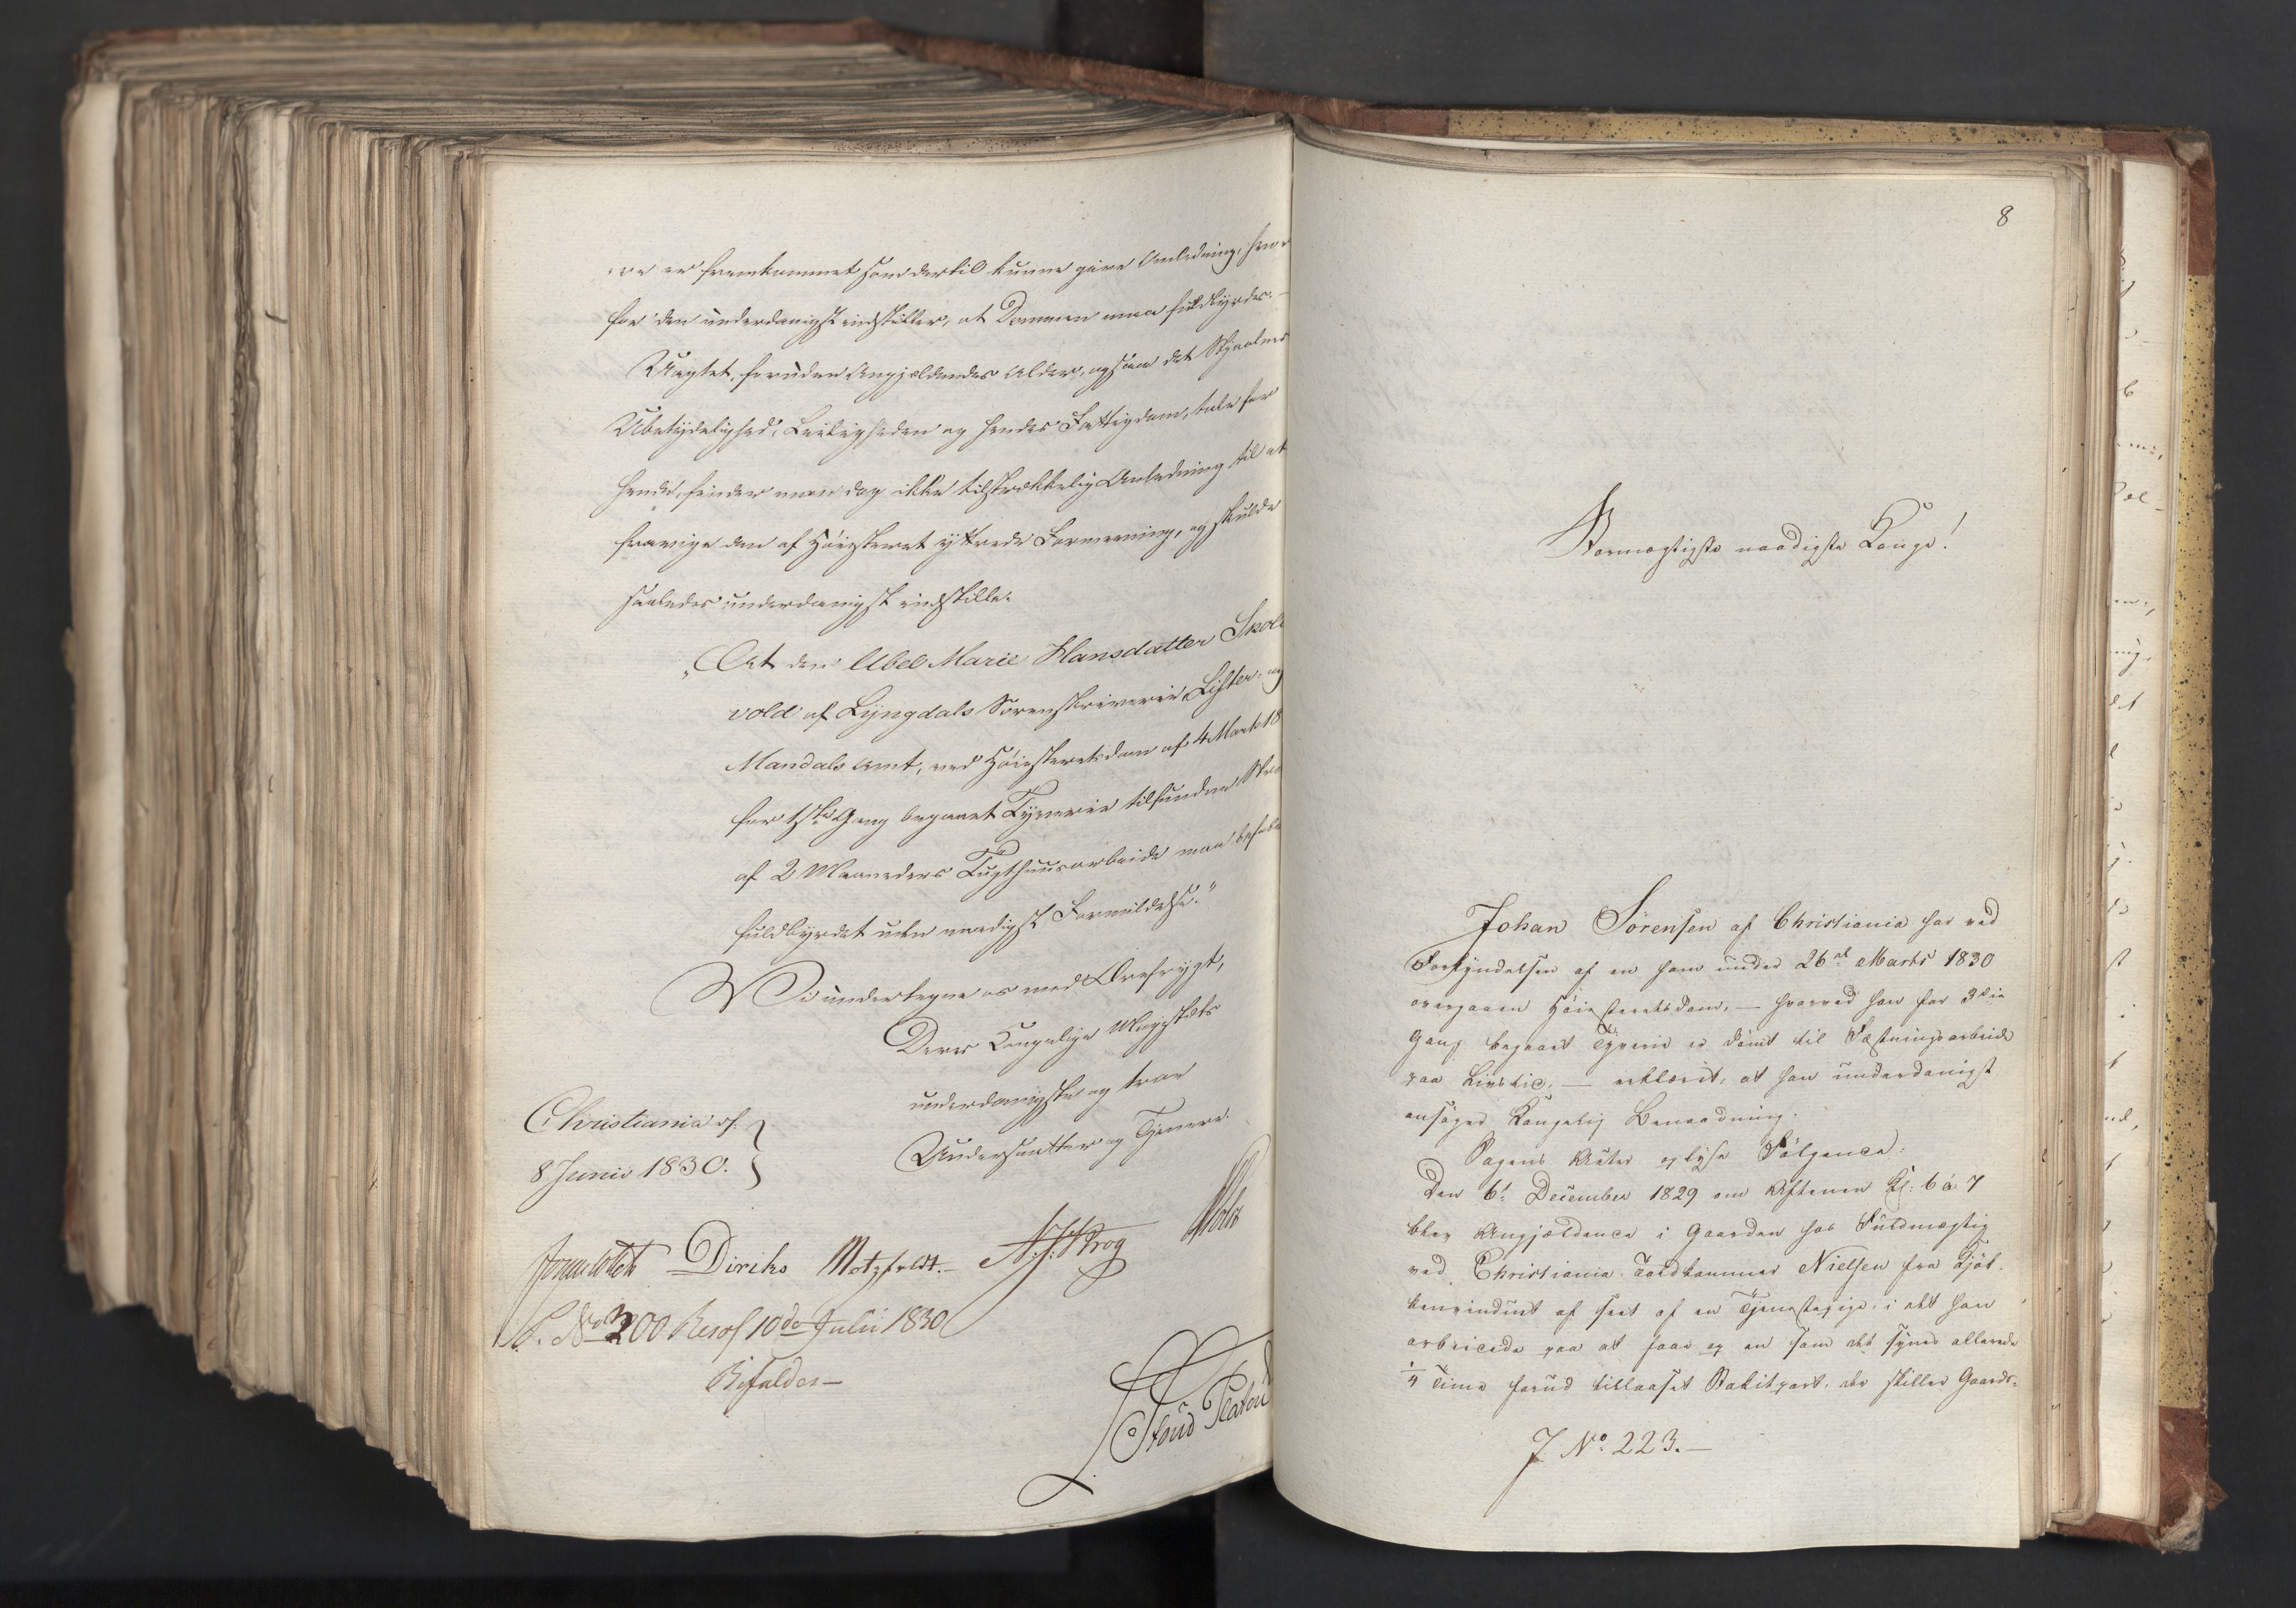 er fremkommet som dertil kunne give Anledning, hvor
for den underdanigst indstiller, at Dommen maa fuldbyrdes. —
Uagtet, foruden Angjældendes Alder, ogsaa det Stjaalnes
Ubetydelighed, Leiligheden og hendes Fattigdom, taler for
hende, finder man dog ikke tilstrækkelig Anledning til at
fravige den af Høiesteret yttrede Formening, og skulde
saaledes underdanigst indstille:
„At den Abel Marie Hansdatter Skole
vold af Lyngdals Sorenskriverie, Lister og
Mandals Amt, ved Høiesteretsdom af 4 Marts 18
for 1ste Gang begaaet Tyverie tilfundne Stra
af 2 Maaneders Tugthuusarbeide maa befales
fuldbyrdet uden naadigst Formildelse."
Vi undertegne os med Ærefrygt,
Deres Kongelige Majestæts
underdanigste og troe
Undersaatter og Tjenere.
Christiania d:
8 Junii 1830.
Diriks Motzfeldt. Krog Holst
P. No 200 Resol 10de Julii 1830
Bifaldes —
8
Stormægtigste naadigste Konge!
Johan Sørensen af Christiania har ved
Forkyndelsen af en ham under 26de Marts 1830
overgaaen Høiesteretsdom, — hvorved han for 3die
Gang begaaet Tyverie er dømt til Fæstningsarbeide
paa Livstid, — erklæret, at han underdanigst
ansøger Kongelig Benaadning.
Sagens Acter oplyse Følgende:
Den 6te December 1829 om Aftenen Kl: 6 à 7
blev Angjældende i Gaarden hos Fuldmægtig
ved Christiania Toldkammer Nielsen fra Kjøk-
kenvinduet af seet af en Tjenestepige, i det han
arbeidede paa at faae op en som det synes allerede
1/4 Time forud tillaaset Stakitport, der skiller Gaards-
J No. 223. —